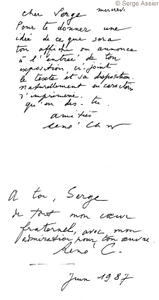 © Serge Assier
cher Serge
Pour te donner une
idée de ce que sera
ton affiche ou annonce
à l'entrée de ton
exposition ci-joint
le texte et sa disposition.
naturellement en
s'imprimera.
qu'en dis-tu.
amitiés
René Ch
A toi, Serge
de tout mon cœur
fraternel, avec mon
admiration pour ton œuvre.
René C.
Juin 1987